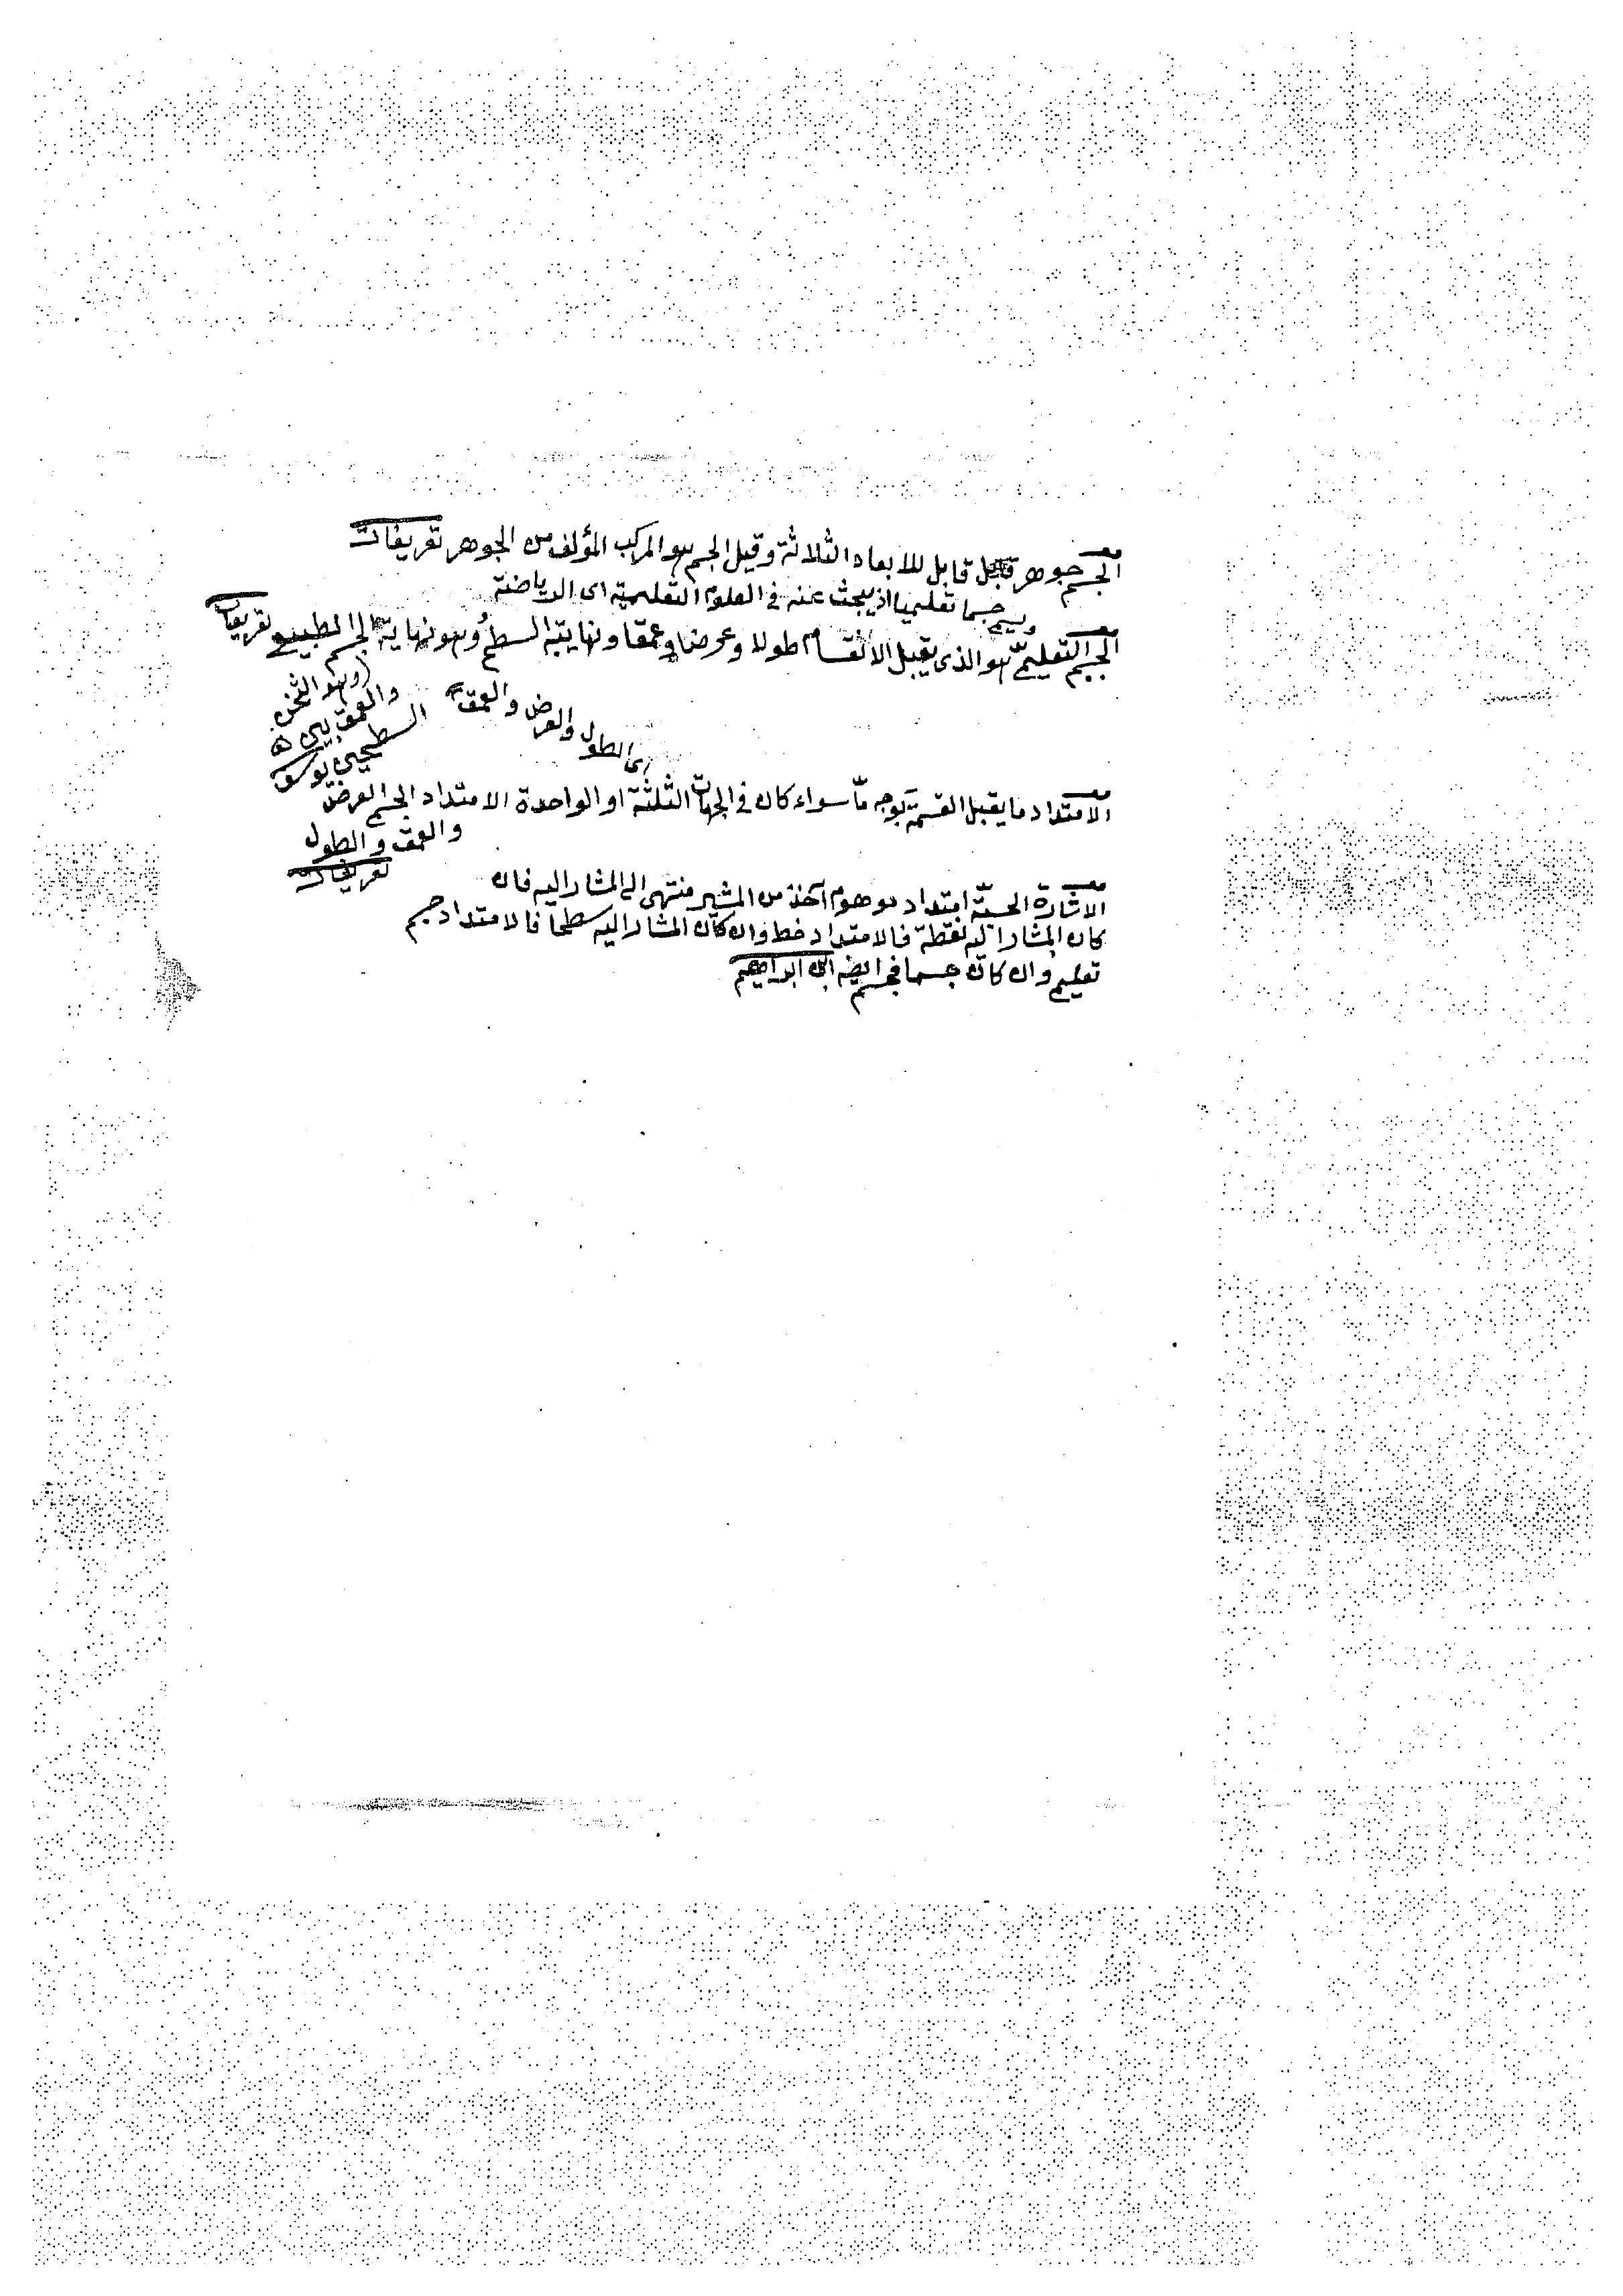 الجسم جوهر قابل للابعاد الثلاثة وقيل الجسم هو المركب المؤلف من الجوهر تعريفات
ويسمى جسما تعليميا اذ يبحث عنه في العلوم التعليمية اى الرياضة
الجسم التعليمى هو الذى يقبل الانقسام طولا وعرضا وعمقا ونهايته السطح وهو نهاية الجسم الطبيعى تعريفات
وهو الثخن
والعمق بين
السطحين يوسف
اى الطول والعرض والعمق
الامتداد ما يقبل القسمة بوجه ما سواء كان في الجهات الثلثة او الواحدة الامتداد الجسم العرض
والعمق والطول
تعريفات
الاشارة الحسية امتداد موهوم آخذ من المشير منتهى الى المشار اليه فان
كان المشار اليه نقطة فالامتداد خط وان كان المشار اليه سطحا فالامتداد جسم
تعليمى وان كان جسما فجسم ابراهيم